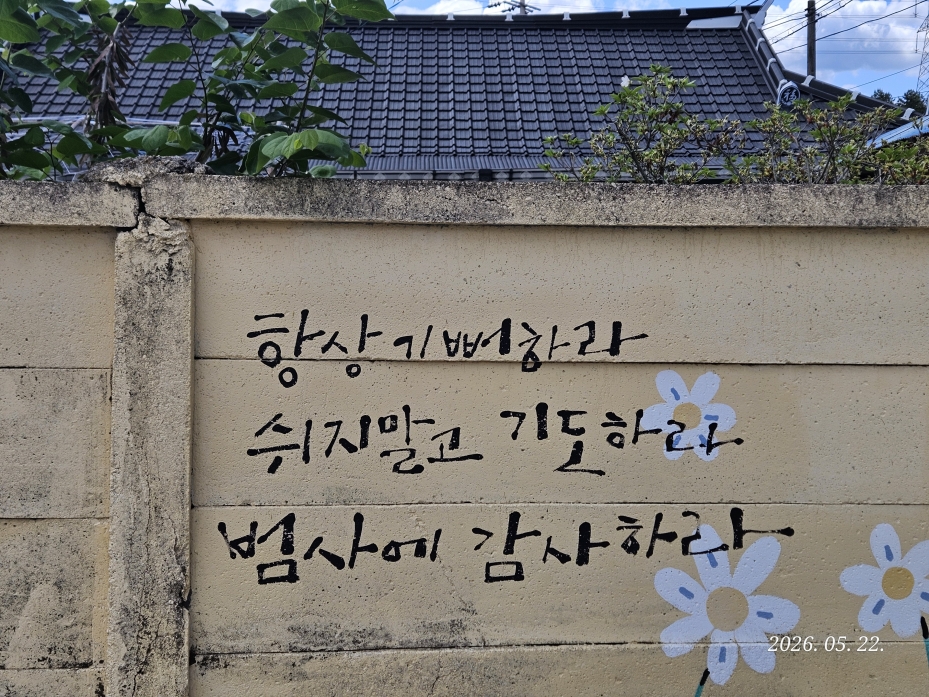 항상 기뻐하라
쉬지말고 기도하라
범사에 감사하라
2026. 05. 22.